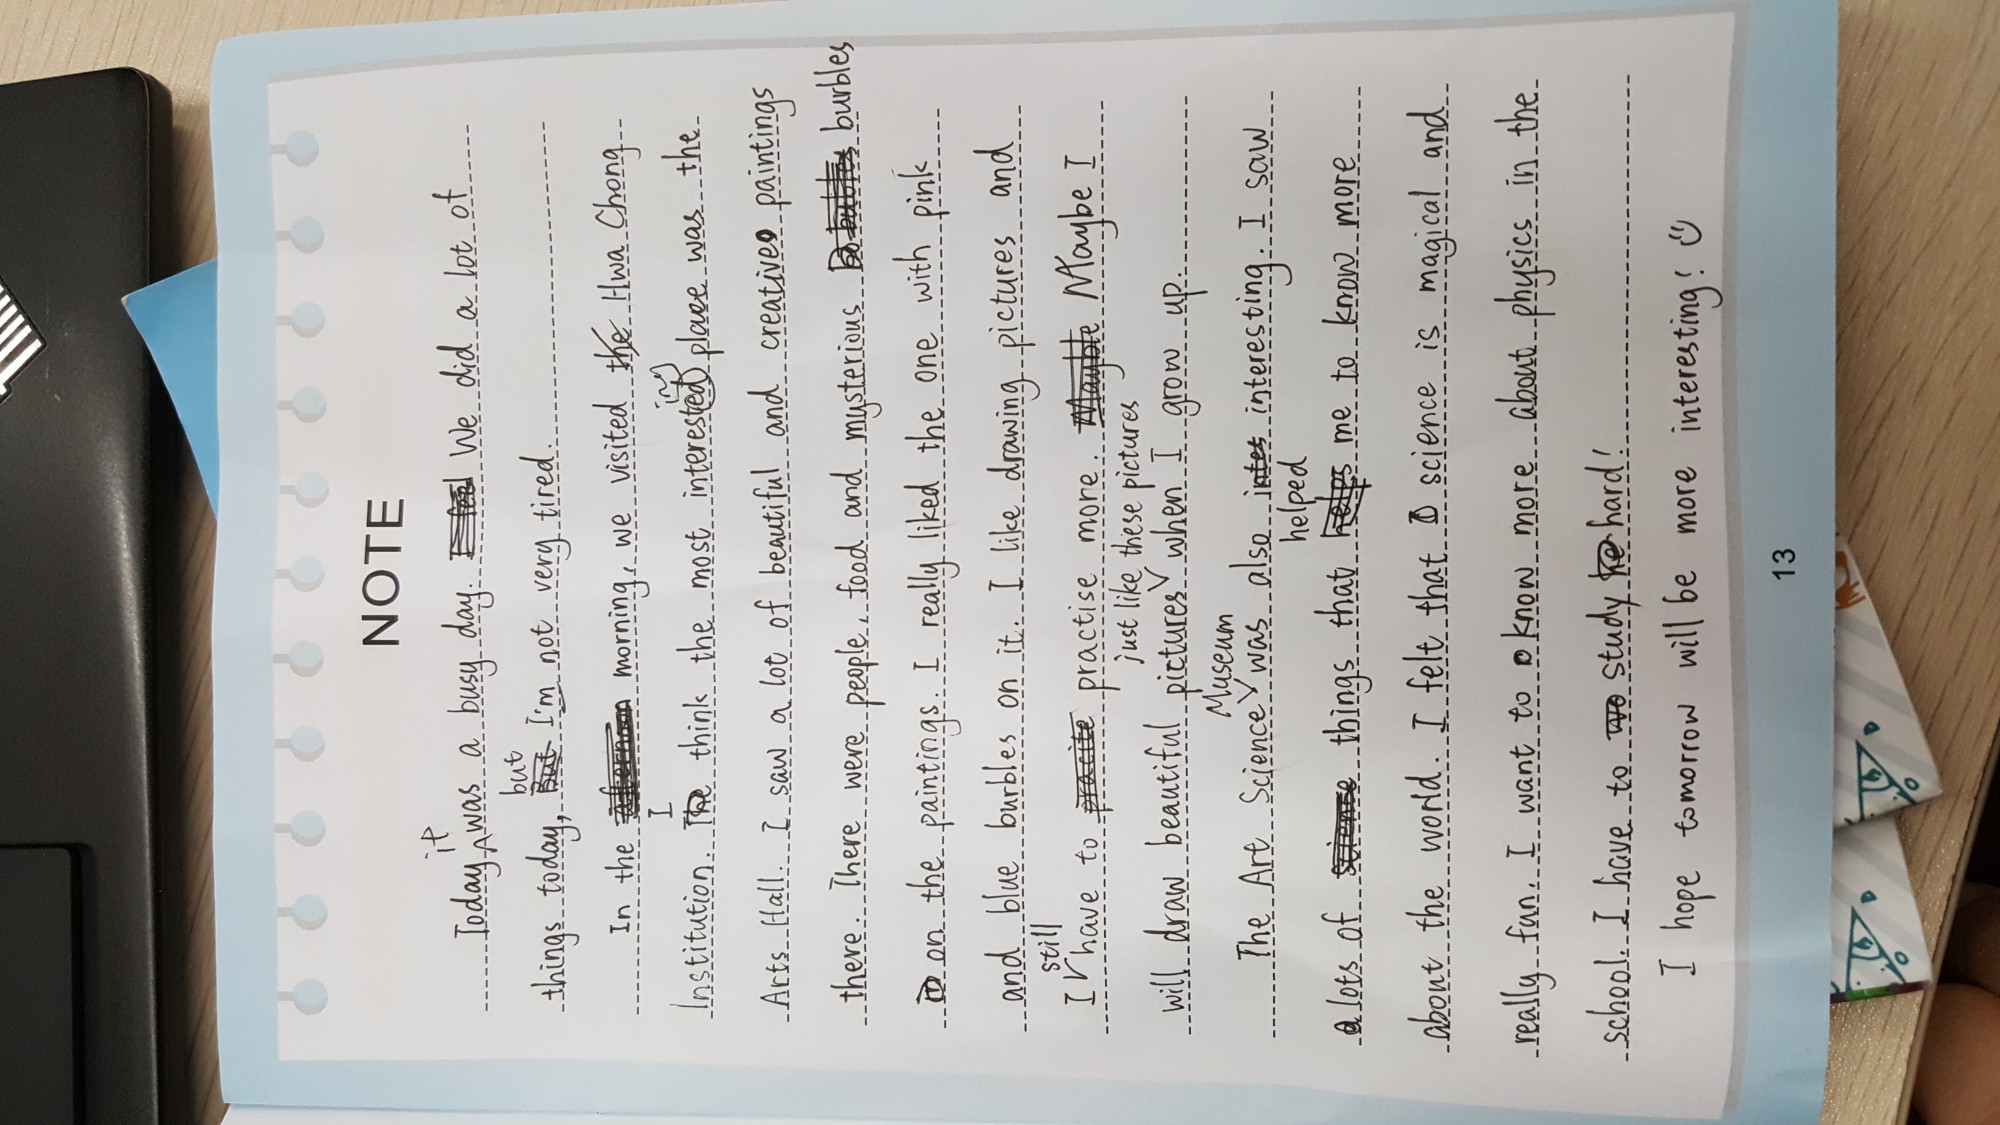 NOTE
Today it was a busy day. We did a lot of
things today, but I'm not very tired.
In the morning, we visited Hwa Chong
Institution. I think the most interesting place was the
Arts Hall. I saw a lot of beautiful and creative paintings
there. There were people, food and mysterious burbles
on the paintings. I really liked the one with pink
and blue burbles on it. I like drawing pictures and
I still have to practise more. Maybe I
will draw beautiful pictures just like these pictures when I grow up.
The Art Science Museum was also interesting. I saw
lots of things that helped me to know more
about the world. I felt that science is magical and
really fun. I want to know more about physics in the
school. I have to study hard!
I hope tomorrow will be more interesting!
13